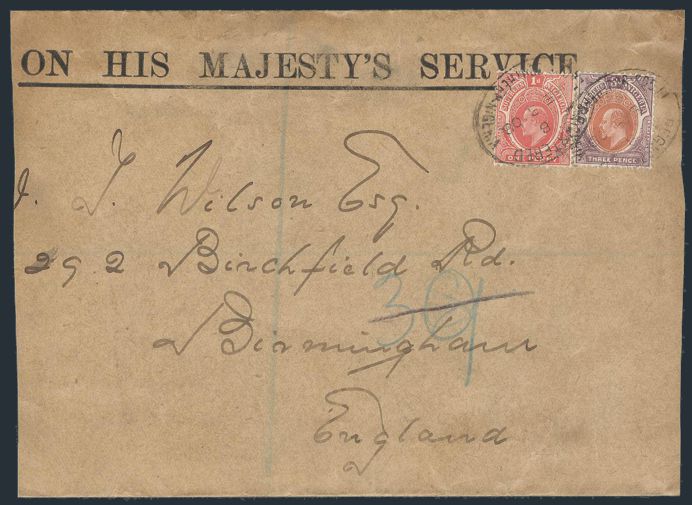 ON HIS MAJESTY'S SERVICE
1D
ONE PENNY
THREE PENCE
J. T. Wilson Esq.
292 Birchfield Rd.
Birmingham
England